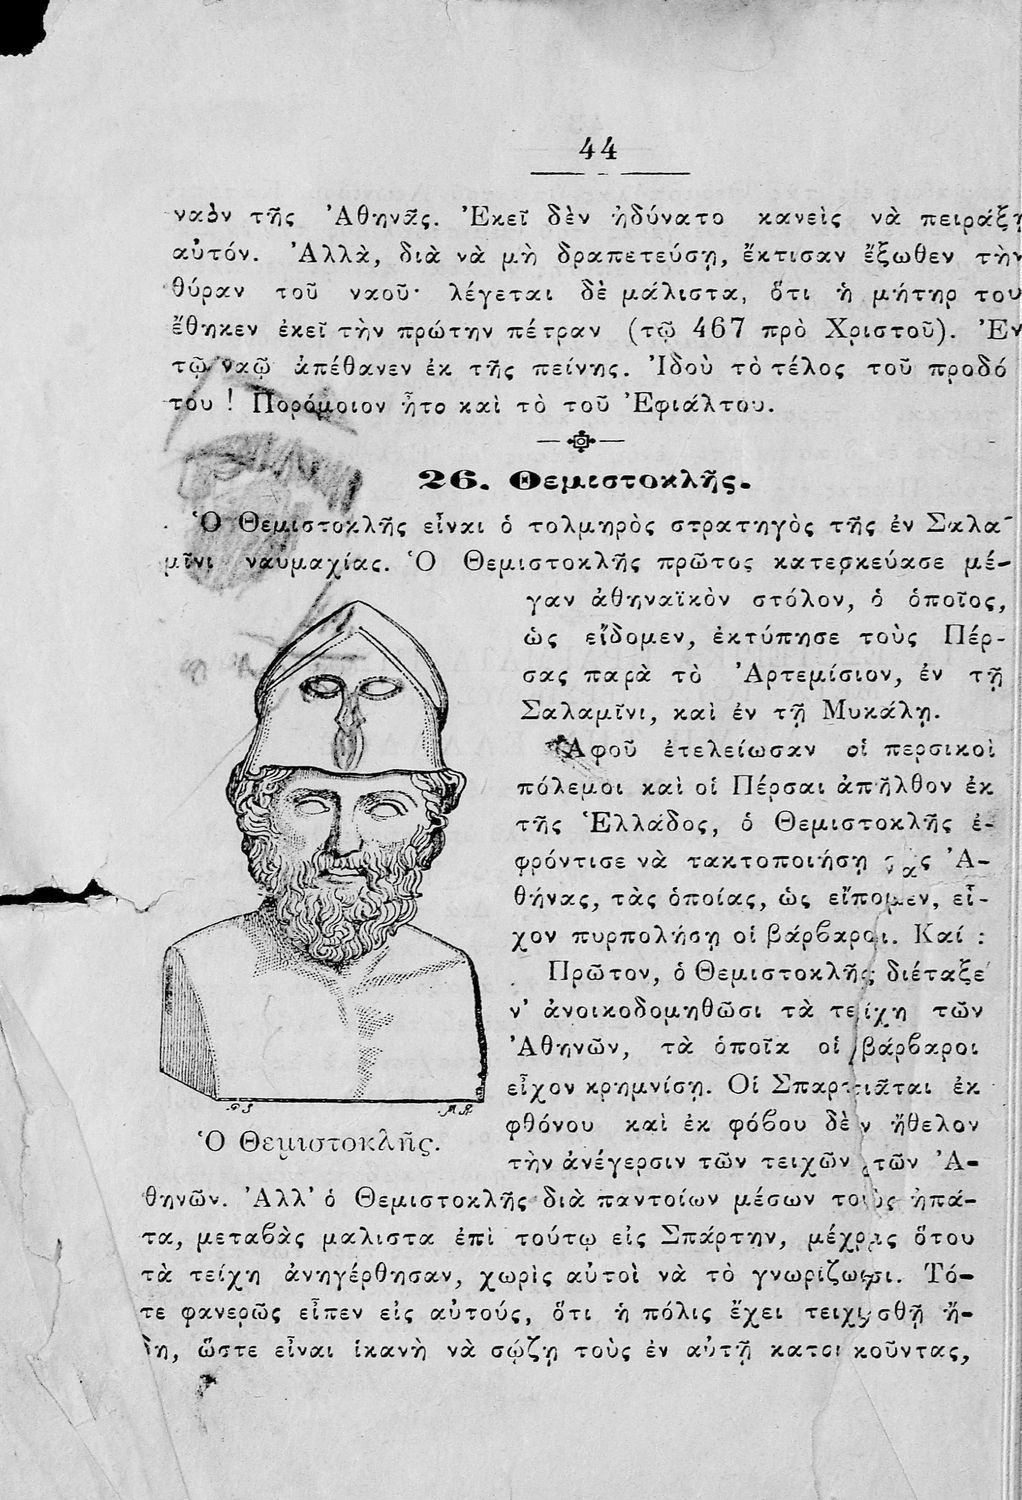 44
ναὸν τῆς Ἀθηνᾶς. Ἐκεῖ δὲν ἠδύνατο κανεὶς νὰ πειράξῃ
αὐτόν. Ἀλλὰ, διὰ νὰ μὴ δραπετεύσῃ, ἔκτισαν ἔξωθεν τὴν
θύραν τοῦ ναοῦ· λέγεται δὲ μάλιστα, ὅτι ἡ μήτηρ του
ἔθηκεν ἐκεῖ τὴν πρώτην πέτραν (τῷ 467 πρὸ Χριστοῦ). Ἐν
τῷ ναῷ ἀπέθανεν ἐκ τῆς πείνης. Ἰδοὺ τὸ τέλος τοῦ προδό
του ! Παρόμοιον ἦτο καὶ τὸ τοῦ Ἐφιάλτου.
26. Θεμιστοκλῆς.
Ὁ Θεμιστοκλῆς εἶναι ὁ τολμηρὸς στρατηγὸς τῆς ἐν Σαλα-
μῖνι ναυμαχίας. Ὁ Θεμιστοκλῆς πρῶτος κατεσκεύασε μέ-
γαν ἀθηναϊκὸν στόλον, ὁ ὁποῖος,
ὡς εἴδομεν, ἐκτύπησε τοὺς Πέρ-
σας παρὰ τὸ Ἀρτεμίσιον, ἐν τῇ
Σαλαμῖνι, καὶ ἐν τῇ Μυκάλῃ.
Ἀφοῦ ἐτελείωσαν οἱ περσικοὶ
πόλεμοι καὶ οἱ Πέρσαι ἀπῆλθον ἐκ
τῆς Ἑλλάδος, ὁ Θεμιστοκλῆς ἐ-
φρόντισε νὰ τακτοποιήσῃ τὰς Ἀ-
θήνας, τὰς ὁποίας, ὡς εἴπομεν, εἶ-
χον πυρπολήσῃ οἱ βάρβαροι. Καί :
Πρῶτον, ὁ Θεμιστοκλῆς διέταξε
ν' ἀνοικοδομηθῶσι τὰ τείχη τῶν
Ἀθηνῶν, τὰ ὁποῖα οἱ βάρβαροι
εἶχον κρημνίσῃ. Οἱ Σπαρτιᾶται ἐκ
φθόνου καὶ ἐκ φόβου δὲν ἤθελον
τὴν ἀνέγερσιν τῶν τειχῶν τῶν Ἀ-
Ὁ Θεμιστοκλῆς.
θηνῶν. Ἀλλ' ὁ Θεμιστοκλῆς διὰ παντοίων μέσων τοὺς ἠπά-
τα, μεταβὰς μαλιστα ἐπὶ τούτῳ εἰς Σπάρτην, μέχρις ὅτου
τὰ τείχη ἀνηγέρθησαν, χωρὶς αὐτοὶ νὰ τὸ γνωρίζωσι. Τό-
τε φανερῶς εἶπεν εἰς αὐτούς, ὅτι ἡ πόλις ἔχει τειχισθῆ ἤ-
δη, ὥστε εἶναι ἱκανὴ νὰ σῴζῃ τοὺς ἐν αὐτῇ κατοικοῦντας,